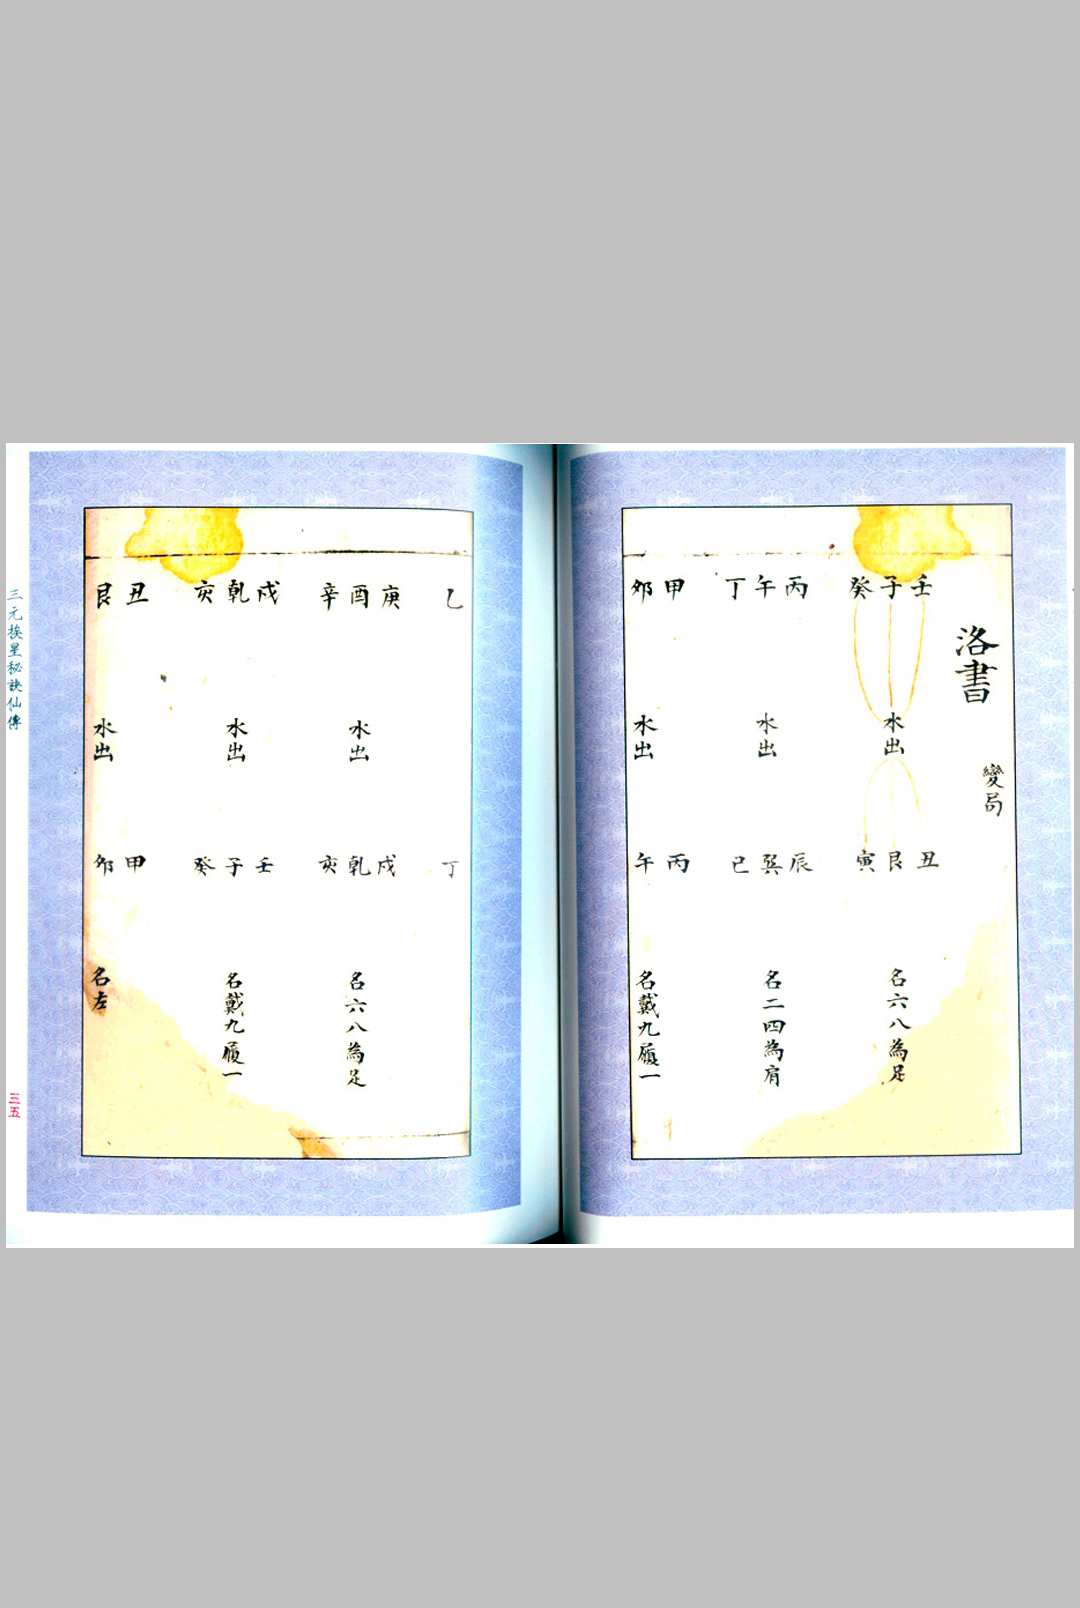 洛書
變局
壬子癸
水出
丑艮寅
名六八為足
丙午丁
水出
辰巽巳
名二四為肩
甲卯
水出
丙午
名戴九履一
乙
丁
庚酉辛
水出
戌乾亥
名六八為足
戌乾亥
水出
壬子癸
名戴九履一
丑艮
水出
甲卯
名左
三元挨星秘訣仙傳
三五